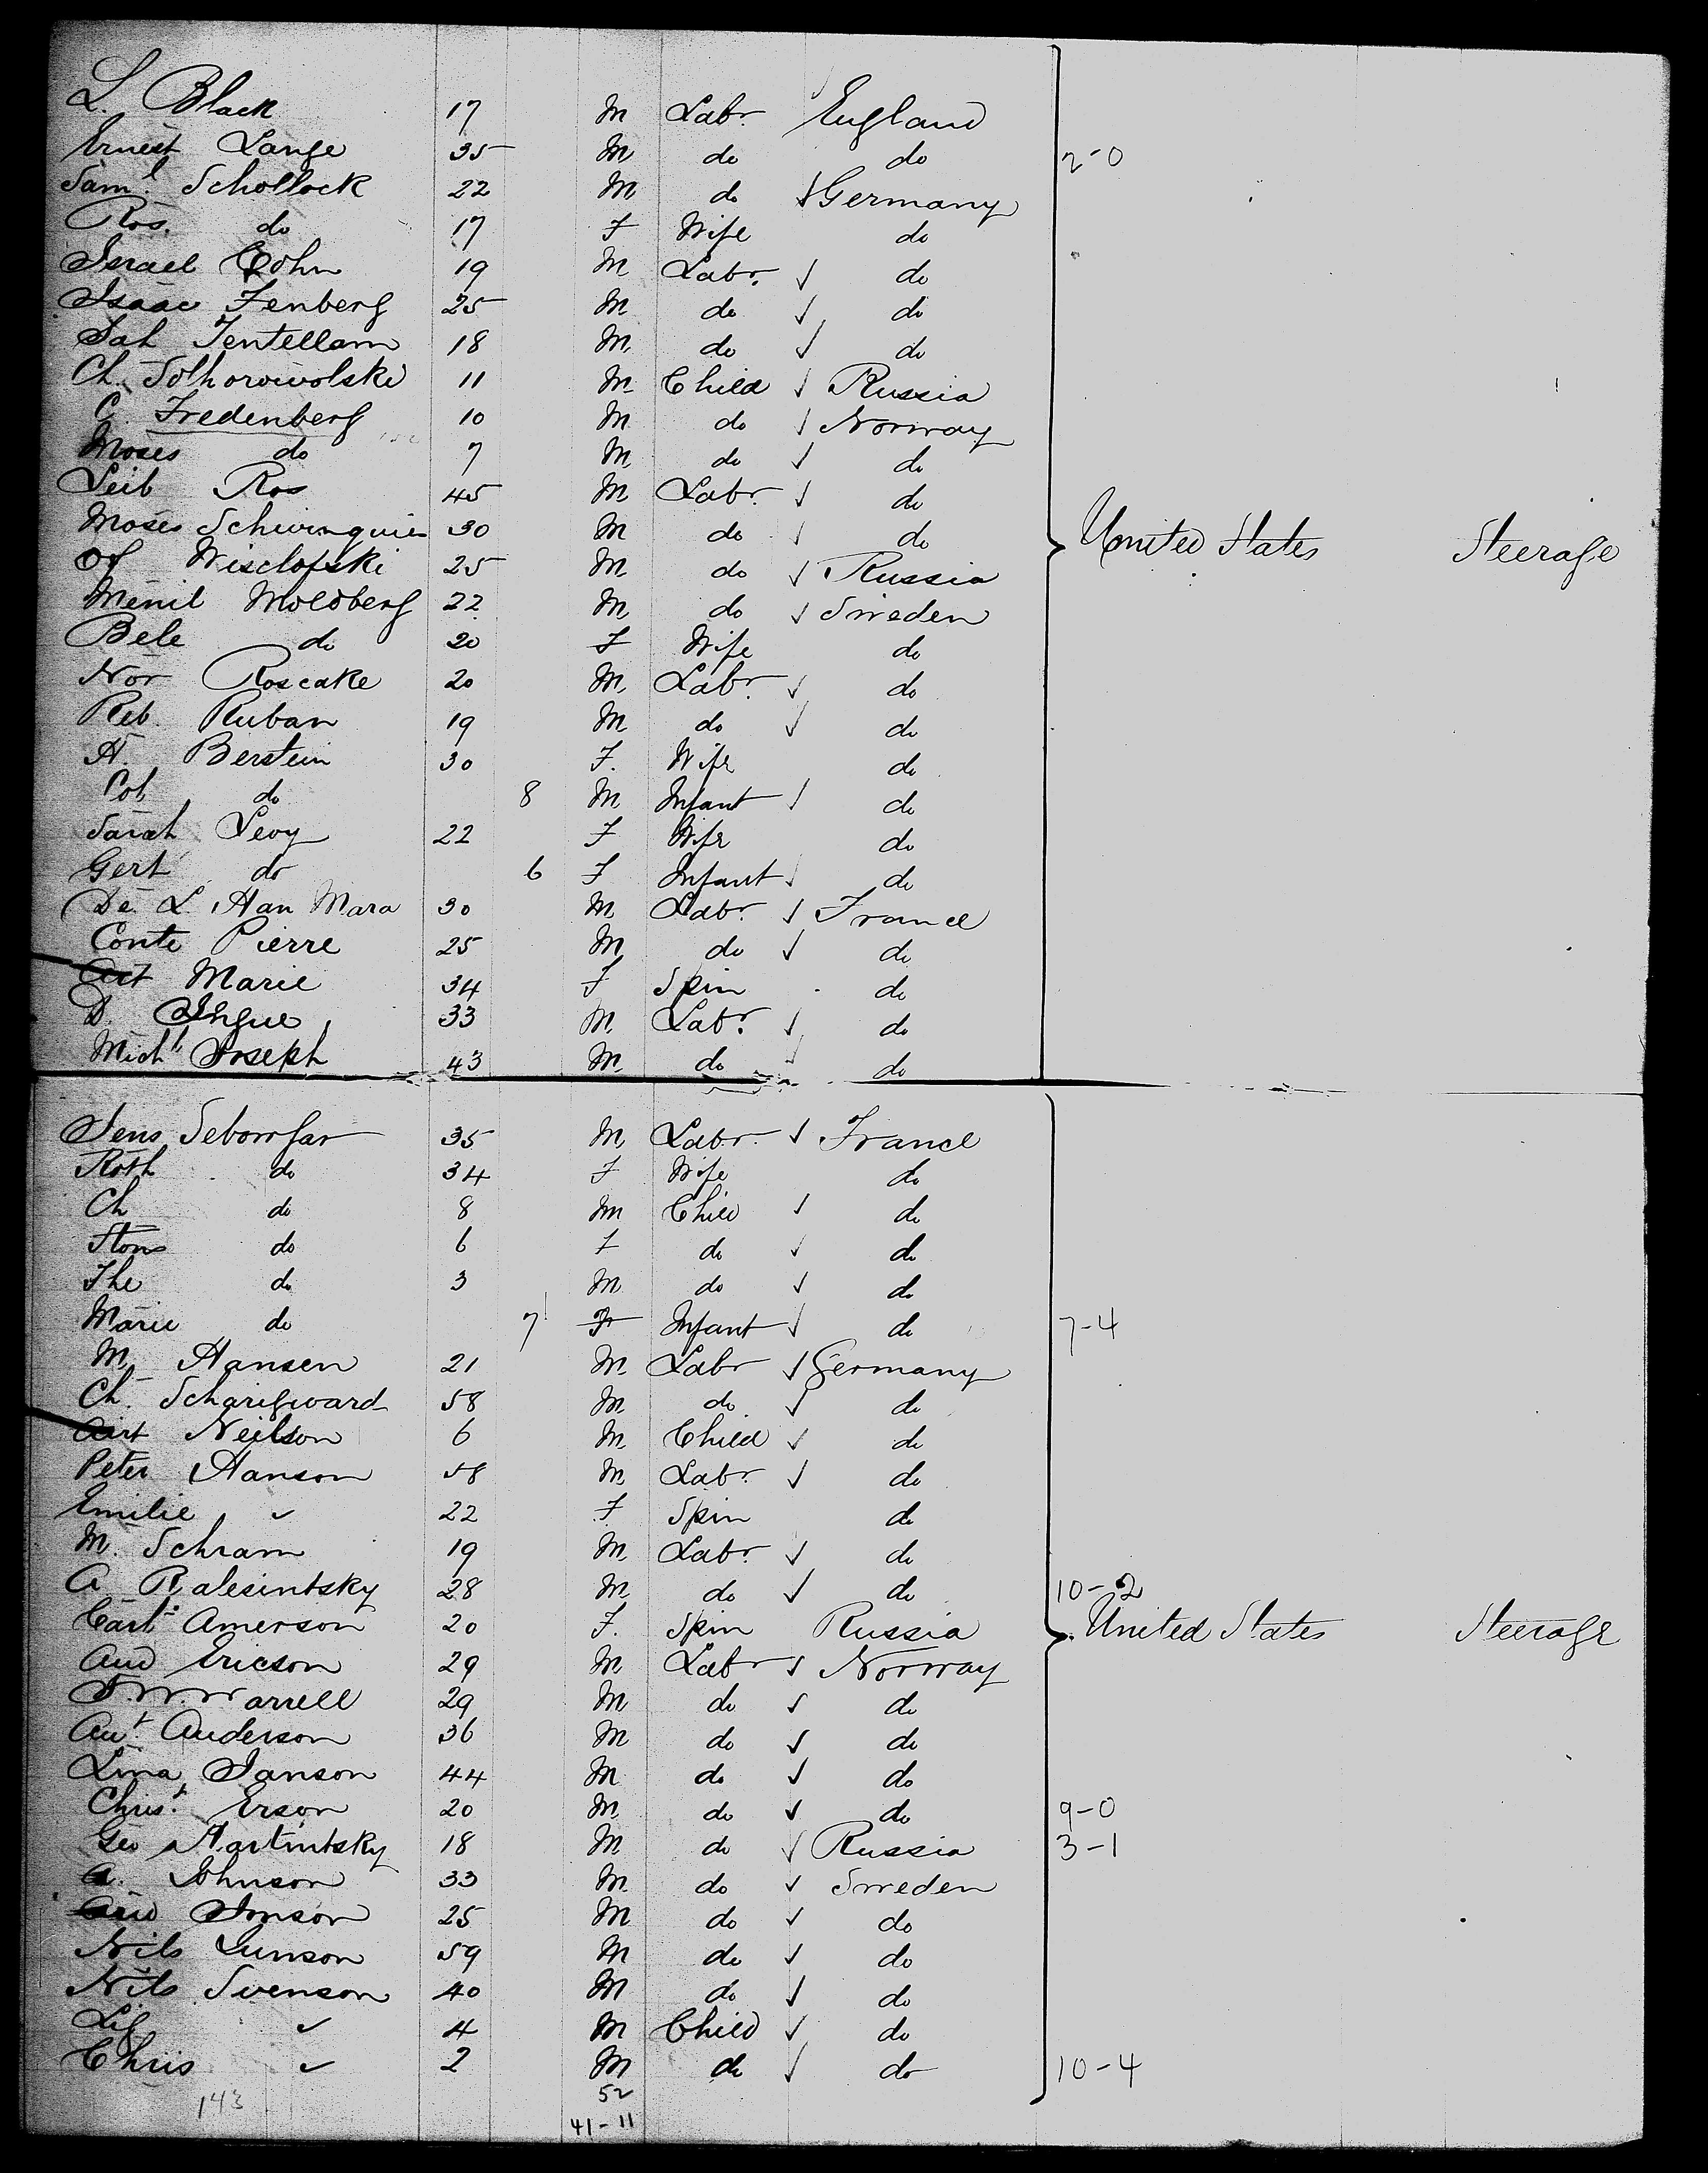 L. Black 17 M Labr England
Ernest Lange 35 M do do 2-0
Saml. Schollock 22 M do Germany
Ros. do 17 F Wife do
Israel Cohn 19 M Labr. do
Isaac Fenberg 25 M do do
Sah Tentellam 18 M do do
Ch. Solhorowolski 11 M Child Russia
C Fredenberg 10 M do Norway
Moses do 7 M do do
Leib Ros 45 M Labr. do
Moses 30 M do do
Of Wisclofski 25 M do Russia
Menil Moldberg 22 M do Sweden
Bele do 20 F Wife do
Nor Roscake 20 M Labr. do
Reb. Ruban 19 M do do
A. Berstein 30 F. Wife do
Col do 8 M Infant do
Sarah Levy 22 F Wife do
Gert do 6 F Infant do
De L. Han Mara 30 M Labr. France
Conte Pierre 25 M do do
Marie 34 F Spin do
D. Ingue 33 M Labr. do
Michl Joseph 43 M do do
United States Steerage
Jens Seborrfar 35 M Labr. France
Roth do 34 F Wife do
Ch do 8 M Child do
Stons do 6 F do do
The do 3 M do do
Marie do 7 F Infant do 7-4
M. Hansen 21 M Labr Germany
Ch. Scharifward 58 M do do
Neilson 6 M Child do
Peter Hanson 58 M Labr. do
Emilie " 22 F Spin do
M. Schram 19 M Labr. do
A. Ralesintsky 28 M do do 10-2
Carl. Amerson 20 F. Spin Russia
United States Steerage
And Ericson 29 M Labr Norway
arrell 29 M do do
Aut. Anderson 36 M do do
Lina Janson 44 M do do
Christ. Erson 20 M do do 9-0
Geo Hartintsky 18 M do Russia 3-1
A. Johnson 33 M do Sweden
Jonson 25 M do do
Nils Lunson 59 M do do
Nils Svenson 40 M do do
Lif " 4 M Child do
Chris " 2 M do do 10-4
143 52
41-11